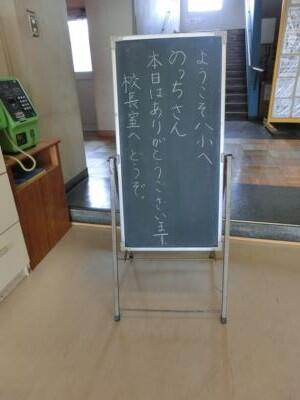 ようこそ八小へ
のっちさん
本日はありがとうございます
校長室へどうぞ。